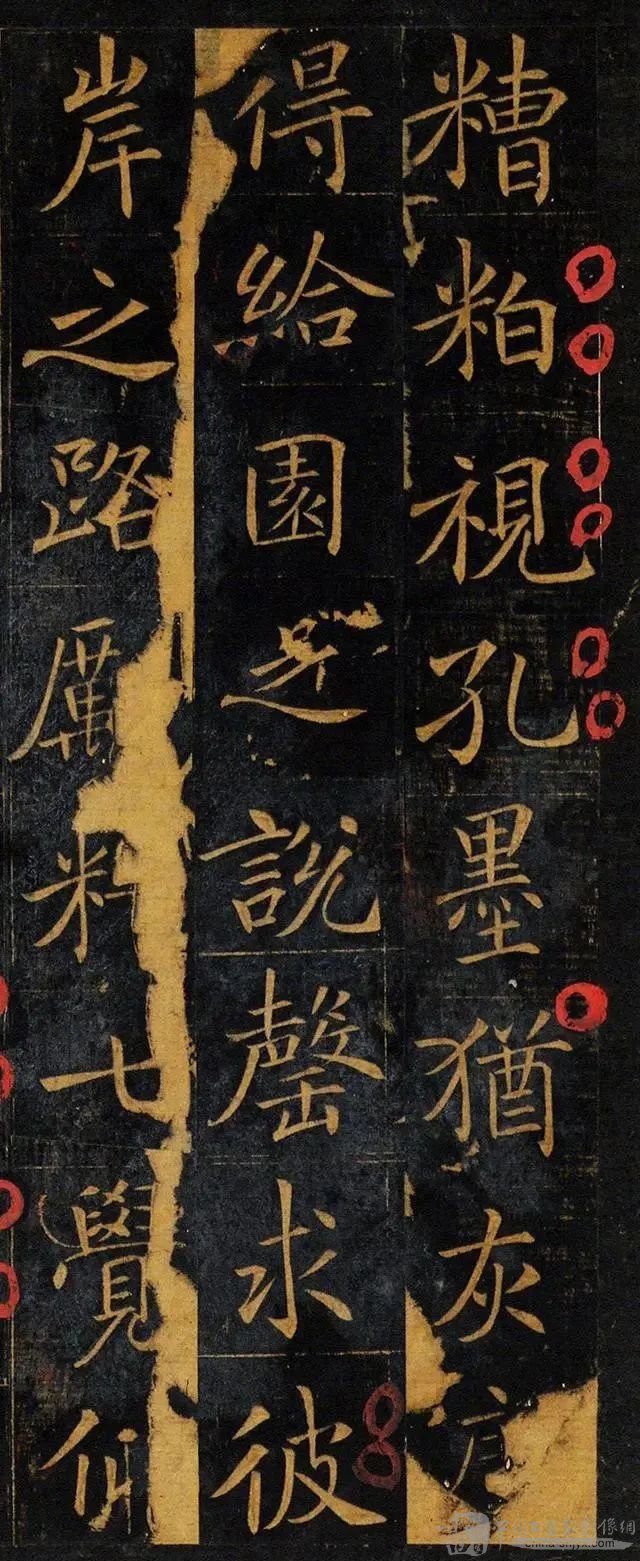 糟粕視孔墨猶灰
得給園之說罄求彼
岸之路厲料七覺